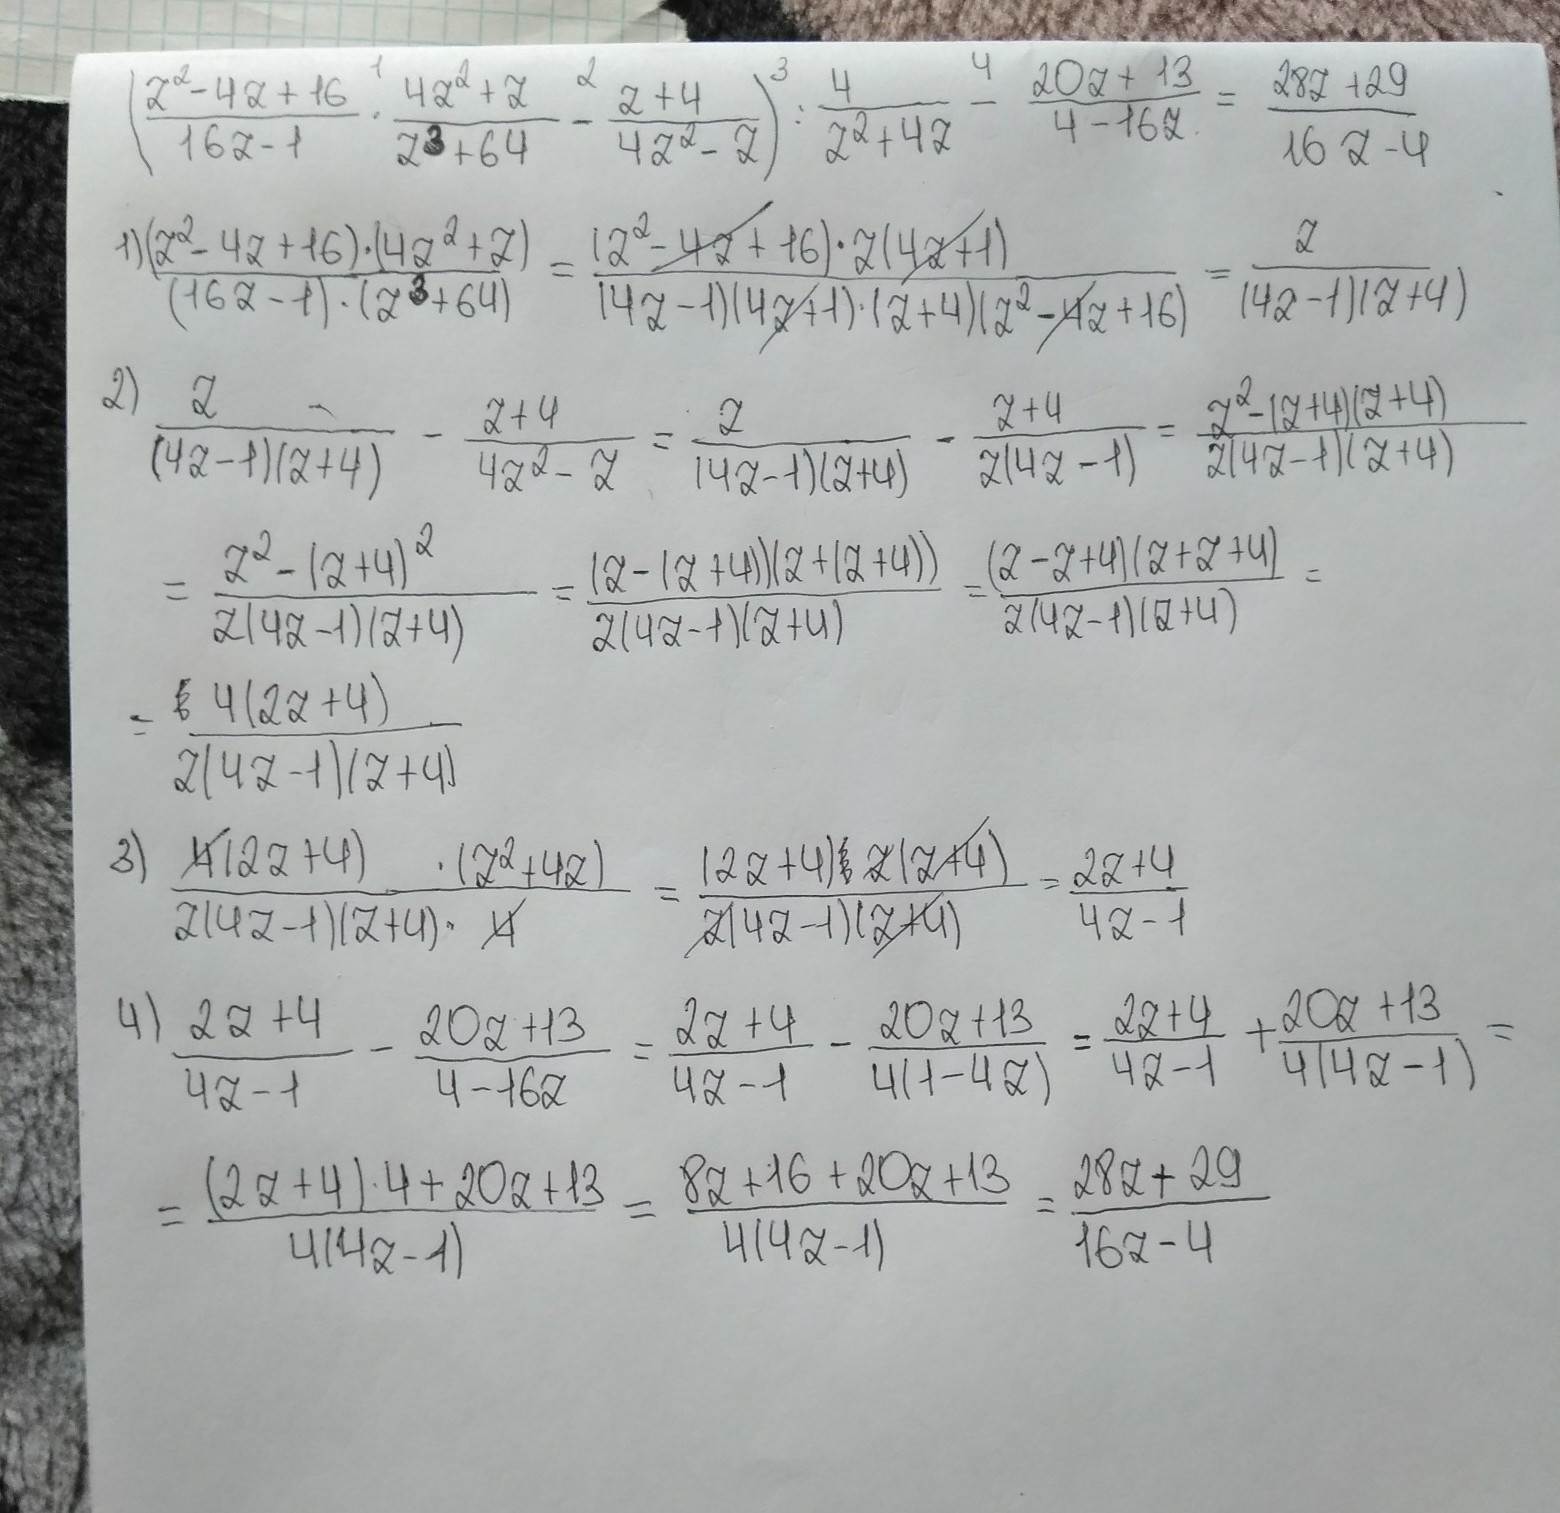 (z²-4z+16/16z-1 ·¹ 4z²+z/z³+64 -² z+4/4z²-z) :³ 4/z²+4z -⁴ 20z+13/4-16z = 28z+29/16z-4
1) (z²-4z+16)·(4z²+z)/(16z-1)·(z³+64) = (z²-4z+16)·z(4z+1)/(4z-1)(4z+1)·(z+4)(z²-4z+16) = z/(4z-1)(z+4)
2) z/(4z-1)(z+4) - z+4/4z²-z = z/(4z-1)(z+4) - z+4/z(4z-1) = z²-(z+4)(z+4)/z(4z-1)(z+4)
= z²-(z+4)²/z(4z-1)(z+4) = (z-(z+4))(z+(z+4))/z(4z-1)(z+4) = (z-z+4)(z+z+4)/z(4z-1)(z+4) =
= 4(2z+4)/z(4z-1)(z+4)
3) 4(2z+4)·(z²+4z)/z(4z-1)(z+4)·4 = (2z+4) z(z+4)/z(4z-1)(z+4) = 2z+4/4z-1
4) 2z+4/4z-1 - 20z+13/4-16z = 2z+4/4z-1 - 20z+13/4(1-4z) = 2z+4/4z-1 + 20z+13/4(4z-1) =
= (2z+4)·4+20z+13/4(4z-1) = 8z+16+20z+13/4(4z-1) = 28z+29/16z-4